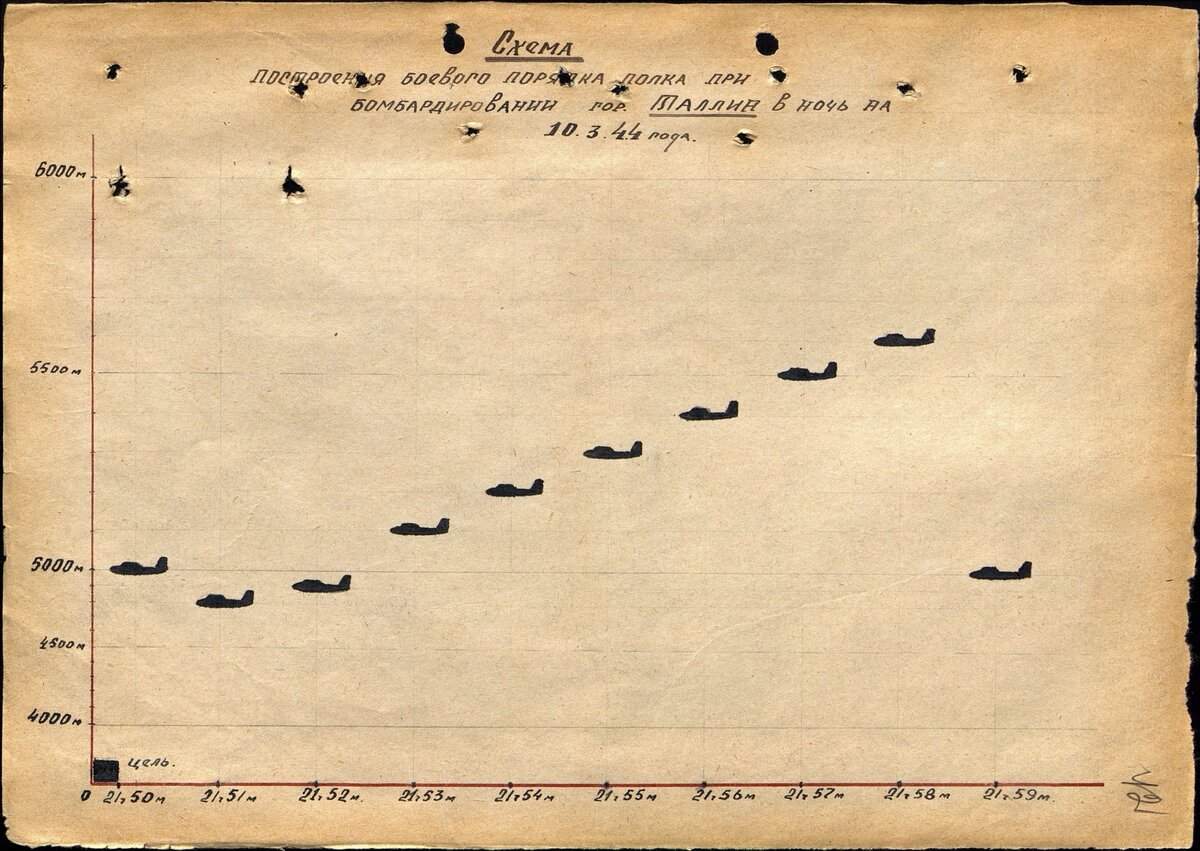 Схема
построения боевого порядка полка при
бомбардировании гор. Таллин в ночь на
10.3.44 года.
6000м
5500м
5000м
4500м
4000м
цель.
0 21ч50м 21ч51м 21ч52м. 21ч53м 21ч54м 21ч55м 21ч56м 21ч57м 21ч58м 21ч59м.